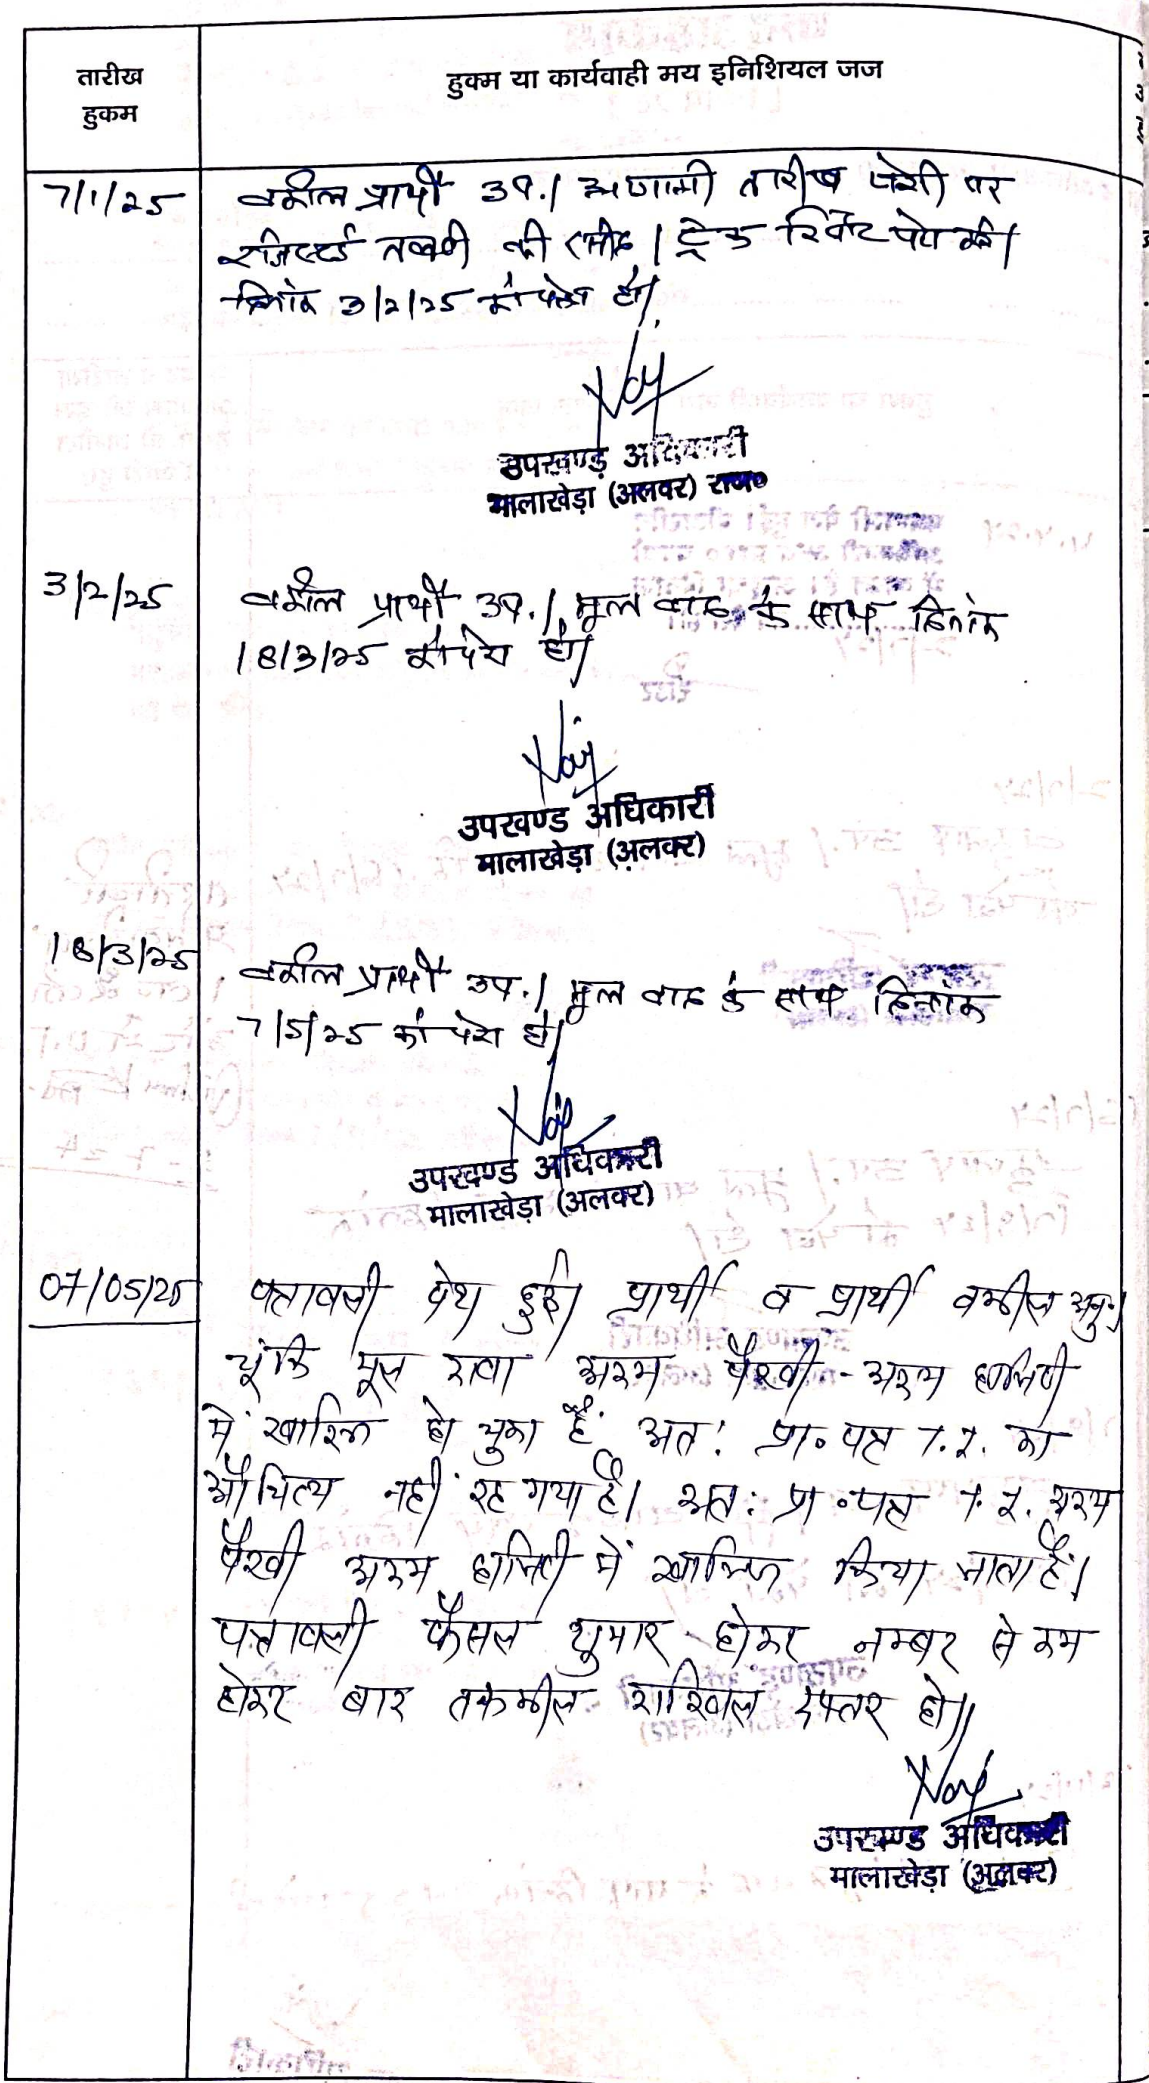 तारीख
हुकम
हुक्म या कार्यवाही मय इनिशियल जज
7/1/25
वकील प्रार्थी उप.। आगामी तारीख पेशी पर
रजिस्टर्ड तलबी की रसीद । ट्रेक रिपोर्ट पेश करें।
दिनांक 3/2/25 को पेश हो।
उपखण्ड अधिकारी
मालाखेड़ा (अलवर) राज०
3/2/25
वकील प्रार्थी उप.। मूल वाद के साथ दिनांक
18/3/25 को पेश हो।
उपखण्ड अधिकारी
मालाखेड़ा (अलवर)
18/3/25
वकील प्रार्थी उप.। मूल वाद के साथ दिनांक
7/5/25 को पेश हो।
उपखण्ड अधिकारी
मालाखेड़ा (अलवर)
07/05/25
पत्रावली पेश हुई। प्रार्थी व प्रार्थी वकील अनु.।
चूंकि मूल दावा अदम पैरवी - अदम हाजिरी
में खारिज हो चुका है अत: प्रा. पत्र T.I. का
औचित्य नहीं रह गया है। अत: प्रा. पत्र T.I. अदम
पैरवी अदम हाजिरी में खारिज किया जाता है।
पत्रावली फैसल शुमार होकर नम्बर से कम
होकर बाद तकमील दाखिल दफ्तर हो।।
उपखण्ड अधिकारी
मालाखेड़ा (अलवर)